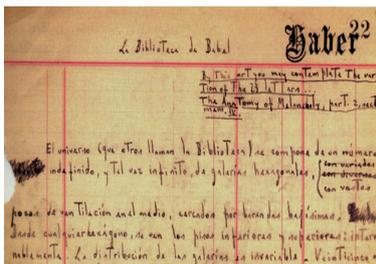 Haber 22
La Biblioteca de Babel
By This art you may contemplate The var
tion of The 23 letters...
The Anatomy of Melancholy, part. 2, sect
mem. IV.
El universo (que otros llaman la Biblioteca) se compone de un número
indefinido, y tal vez infinito, de galerías hexagonales,
con variados
son diversos
con vastos
pozos de ventilación al medio, cercados por barandas bajísimas.
Desde cualquier hexágono, se ven los pisos inferiores y superiores: inter
nablemente. La distribución de las galerías es invariable. Veinticinco